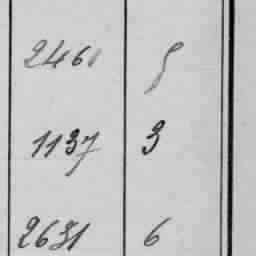 2460
1137 3
2631 6